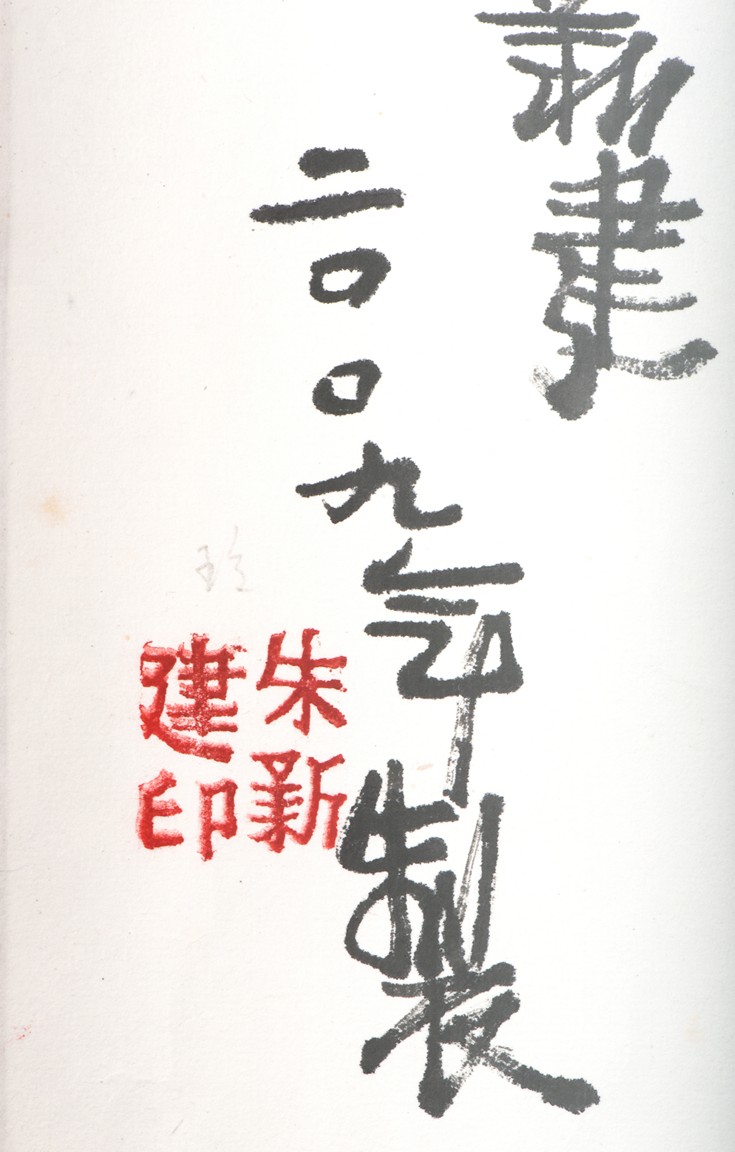 新建
二〇〇九年製
朱新
建印